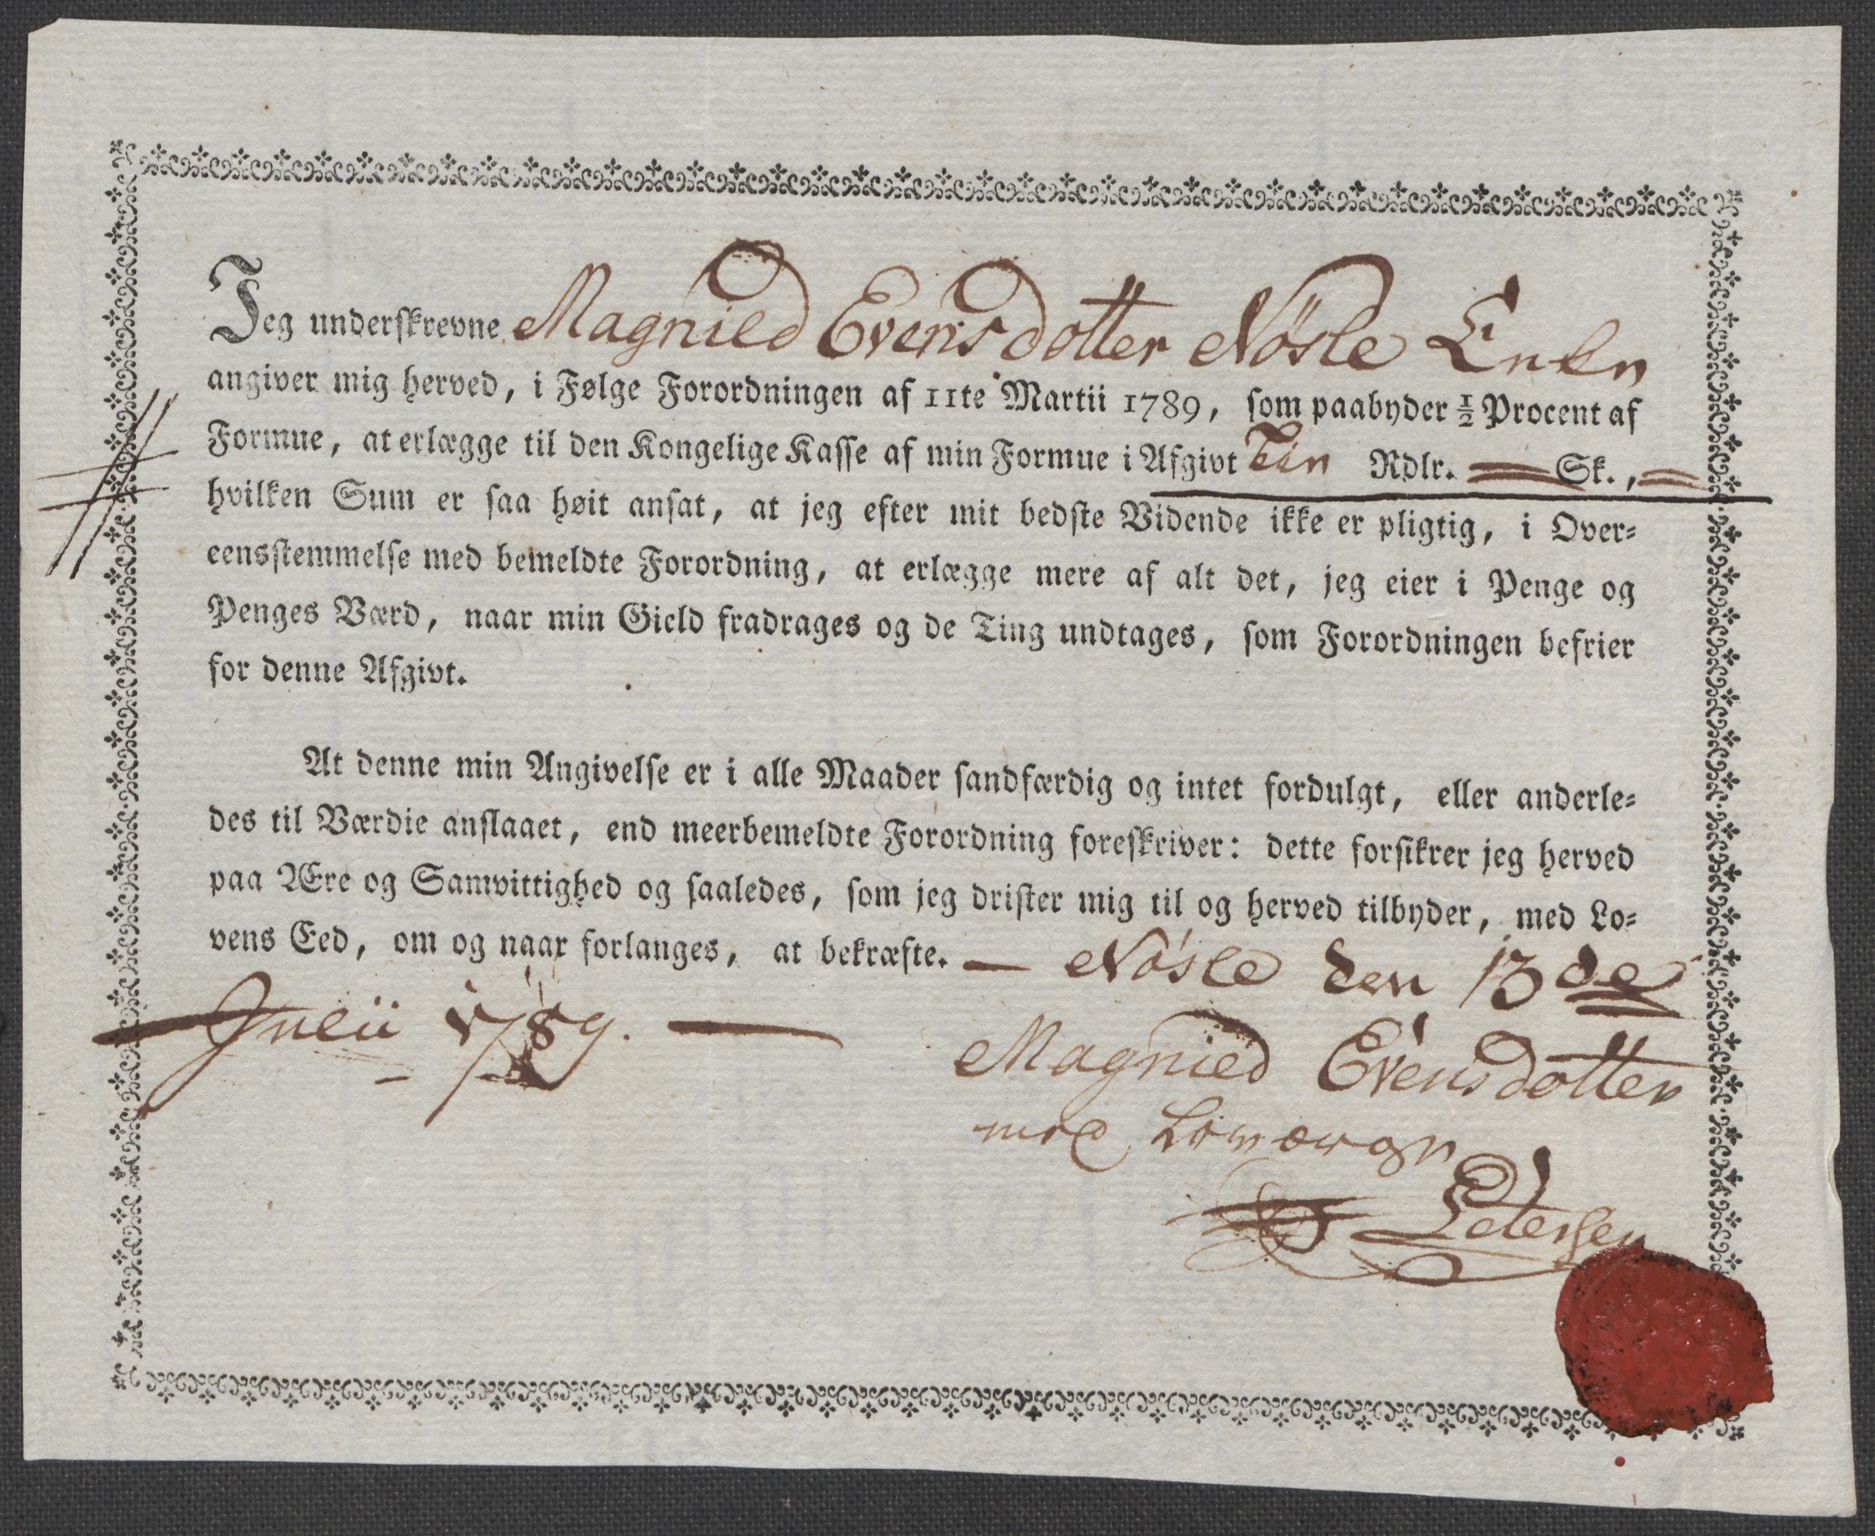 Jeg underskrevne Magnied Evensdotter Nösle Enke
angiver mig herved, i Følge Forordningen af 11te Martii 1789, som paabyder ½ Procent af
Formue, at erlægge til den Kongelige Kasse af min Formue i Afgivt Rdlr. — Sk., —
hvilken Sum er saa høit ansat, at jeg efter mit bedste Vidende ikke er pligtig, i Over-
eensstemmelse med bemeldte Forordning, at erlægge mere af alt det, jeg eier i Penge og
Penges Værd, naar min Gield fradrages og de Ting undtages, som Forordningen befrier
for denne Afgivt.
At denne min Angivelse er i alle Maader sandfærdig og intet fordulgt, eller anderle-
des til Værdie anslaaet, end meerbemeldte Forordning foreskriver: dette forsikrer jeg herved
paa Ære og Samvittighed og saaledes, som jeg drister mig til og herved tilbyder, med Lo-
vens Eed, om og naar forlanges, at bekræfte. — Nösle den 13de
Junii 1789. —
Magnied Evensdotter
med
Petersen